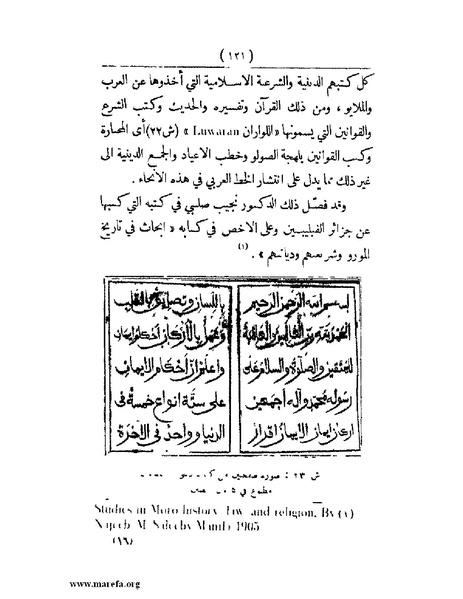 ( ١٢١ )
كل كتبهم الدينية والشرعة الاسلامية التي أخذوها عن العرب
والملايو ، ومن ذلك القرآن وتفسيره والحديث وكتب الشرع
والقوانين التي يسمونها «اللواران Luwaran » (ش٢٢) أى المختارة
وكتب القوانين بلهجة الصولو وخطب الاعياد والجمع الدينية الى
غير ذلك مما يدل على انتشار الخط العربي في هذه الانحاء .
وقد فصّل ذلك الدكتور نجيب صليبي في كتبه التي كتبها
عن جزائر الفيليبين وعلى الاخص في كتابه « ابحاث في تاريخ
المورو وشرعتهم وديانتهم » . (١)
بسم الله الرحمن الرحيم
الحمد لله رب العالمين والعاقبة
للمتقين والصلوة والسلام على
رسوله محمد وآله اجمعين
اركان ايمان الايمان اقرار
باللسان وتصديق بالقلب
وعمل بالاركان احكام ايمان
واعلم ان احكام الايمان
على ستة انواع خمسة في
الدنيا وواحد في الآخرة
ش ٢٣ : صورة صفحتين من
مطبوع في
Studies in Moro history, law and religion, By (١)
Najeeb M. Saleeby Manila 1905
(١٦)
www.marefa.org